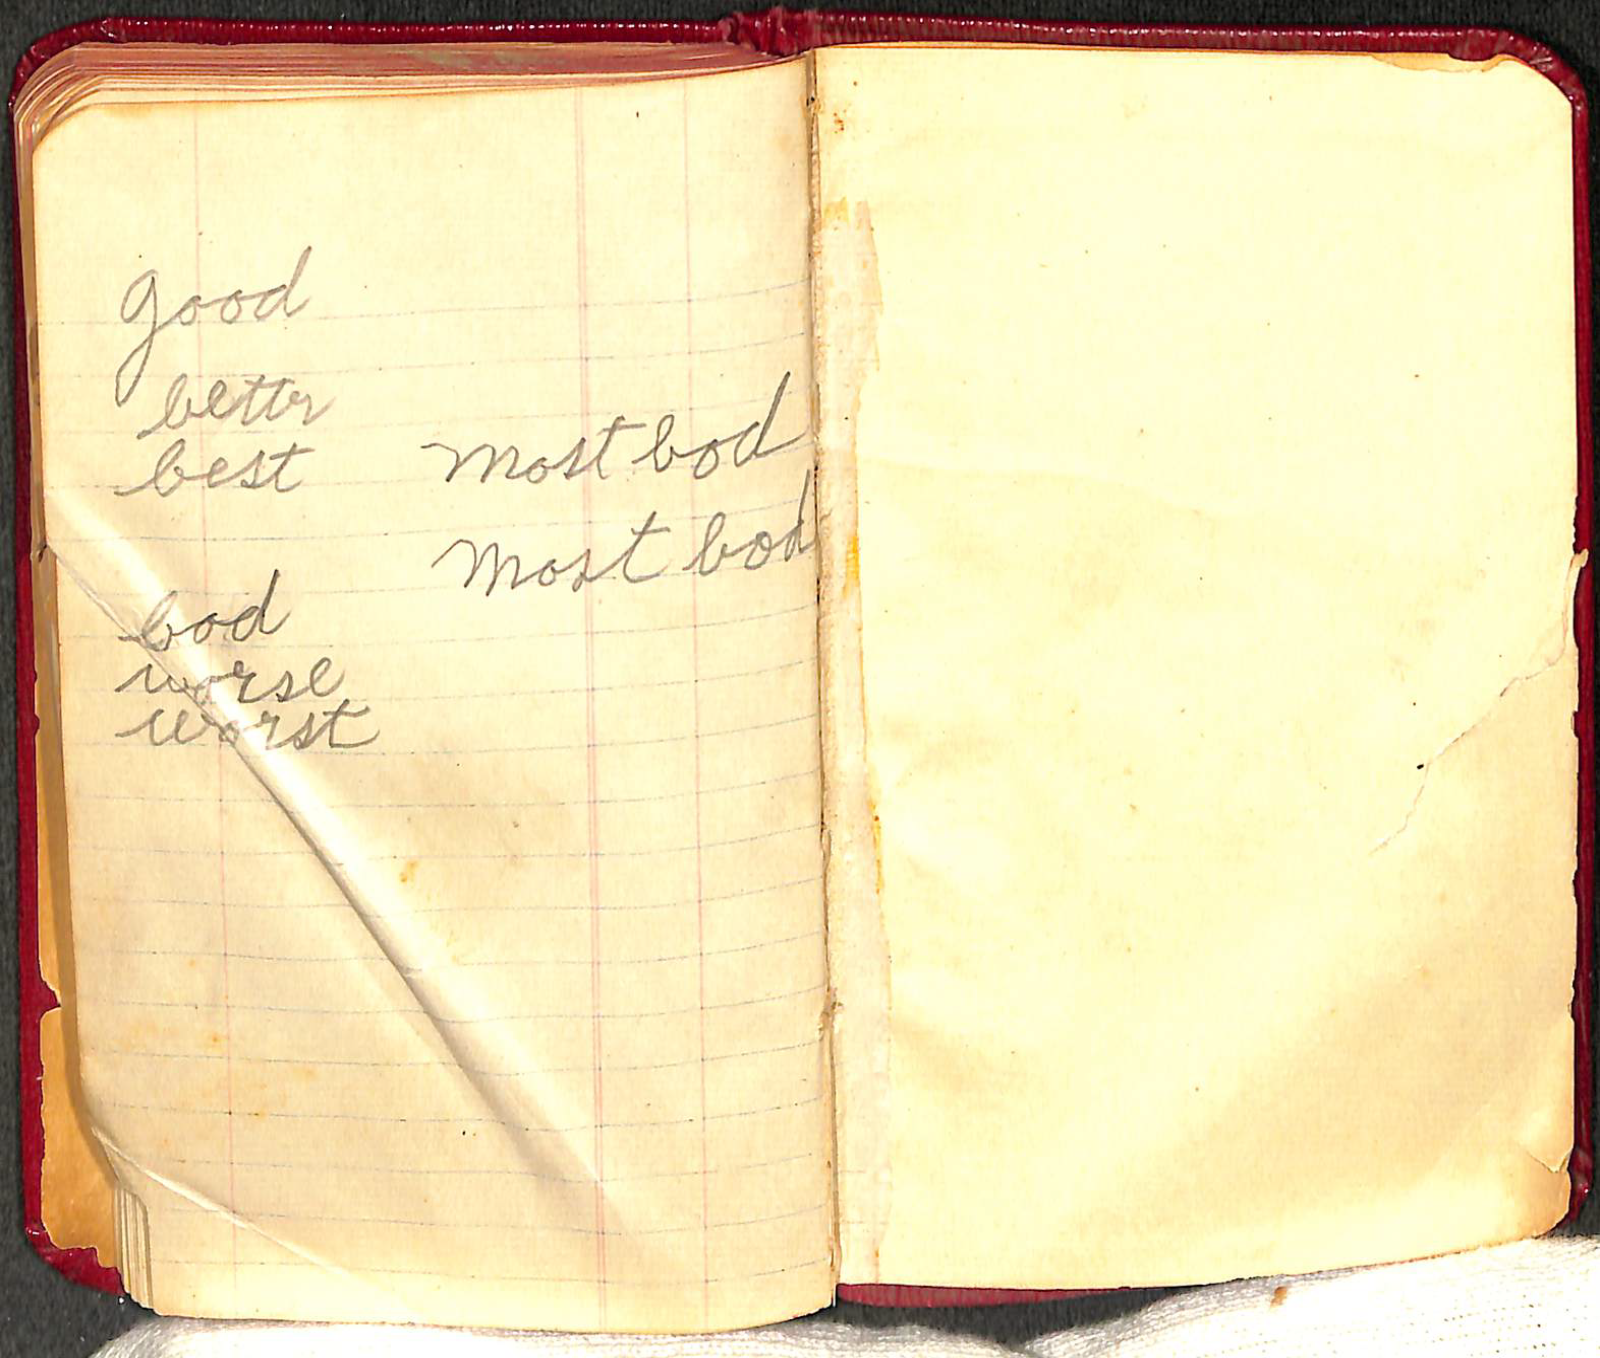 good
better
best
most bad
most bad
bad
worse
worst